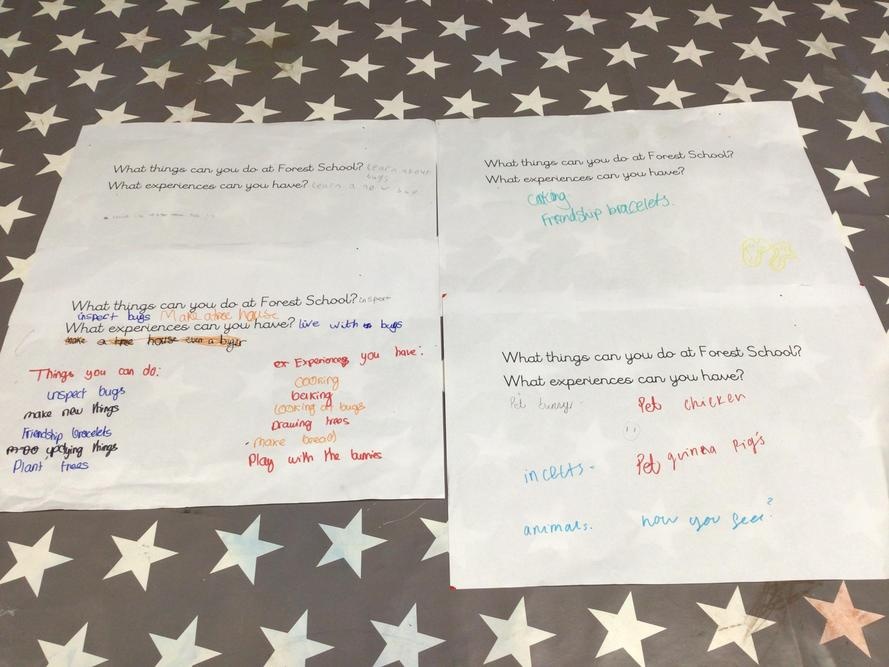 What things can you do at Forest School? Learn about
bugs
What experiences can you have? Learn a new bug
What things can you do at Forest School? inspect
inspect bugs Make a tree house
What experiences can you have? live with bugs
make a tree house even a biger
Things you can do:
inspect bugs
make new things
Friendship bracelets
upclying things
Plant trees
ex Experiences you have:
cooking
Baking
looking at bugs
Drawing trees
make bread
Play with the bunnies
What things can you do at Forest School?
What experiences can you have?
Friendship bracelets.
What things can you do at Forest School?
What experiences can you have?
Pet bunny. Pet chicken
incets. Pet guinea Pig's
animals. how you feel?